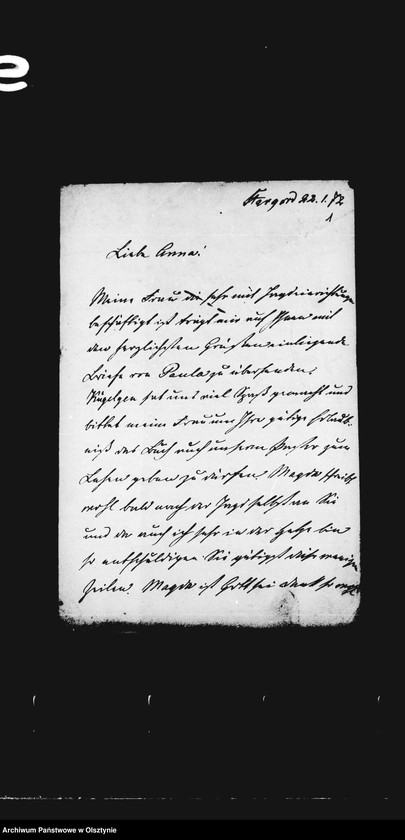 Stargord 22.1.72
1
Liebe Anna!
Meine Frau die sehr mit Jagdeinrichtungen
beschäftigt ist trägt mir auf Ihnen mit
den herzlichsten Grüßen einliegende
Briefe von Paula zu übersenden.
Kügelgen hat uns viel Spaß gemacht und
bittet meine Frau um Ihre gütige Erlaub-
niß das Buch auch unserm Pastor zum
Lesen geben zu dürfen. Magda schreibt
wohl bald nach der Jagd selbst an Sie
und da auch ich sehr in der Hetze bin
so entschuldigen Sie gütigst diese wenigen
Zeilen. Magda ist Gott sei Dank so
Archiwum Państwowe w Olsztynie